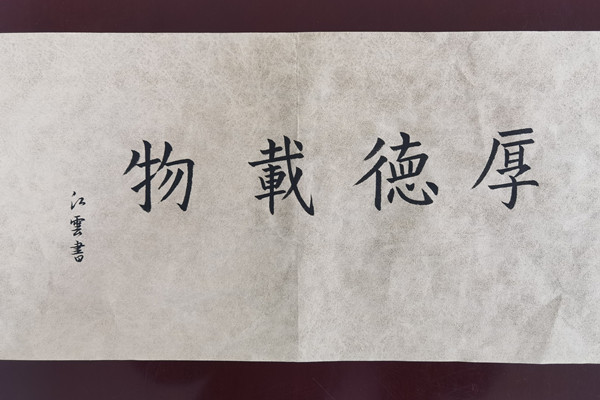 厚德載物
江雲書